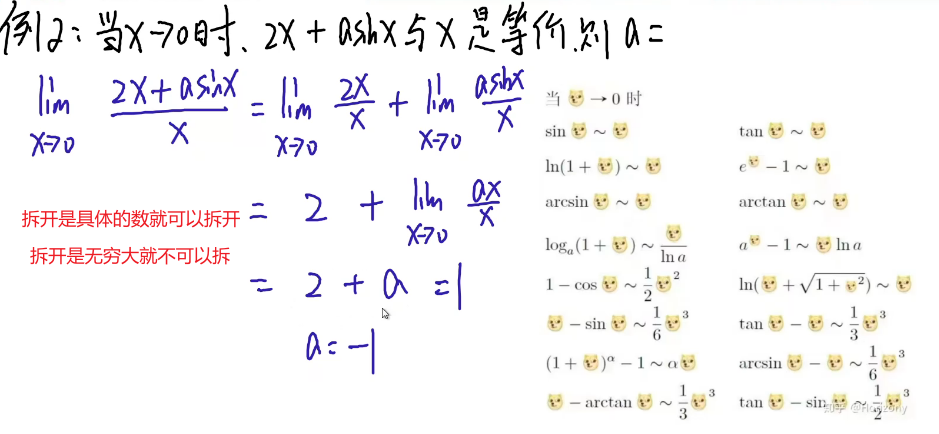 例2:当x→0时、2x+asinx与x是等价.则a=
lim x→0 (2x+asinx)/x = lim x→0 2x/x + lim x→0 asinx/x
= 2 + lim x→0 ax/x
= 2 + a = 1
a=-1
拆开是具体的数就可以拆开
拆开是无穷大就不可以拆
当🐱→0 时
sin🐱~🐱 tan🐱~🐱
ln(1+🐱)~🐱 e^🐱-1~🐱
arcsin🐱~🐱 arctan🐱~🐱
logₐ(1+🐱)~🐱/ln a a^🐱-1~🐱ln a
1-cos🐱~1/2🐱² ln(🐱+√(1+🐱²))~🐱
🐱-sin🐱~1/6🐱³ tan🐱-🐱~1/3🐱³
(1+🐱)^α-1~α🐱 arcsin🐱-🐱~1/6🐱³
🐱-arctan🐱~1/3🐱³ tan🐱-sin🐱~1/2🐱³
知乎